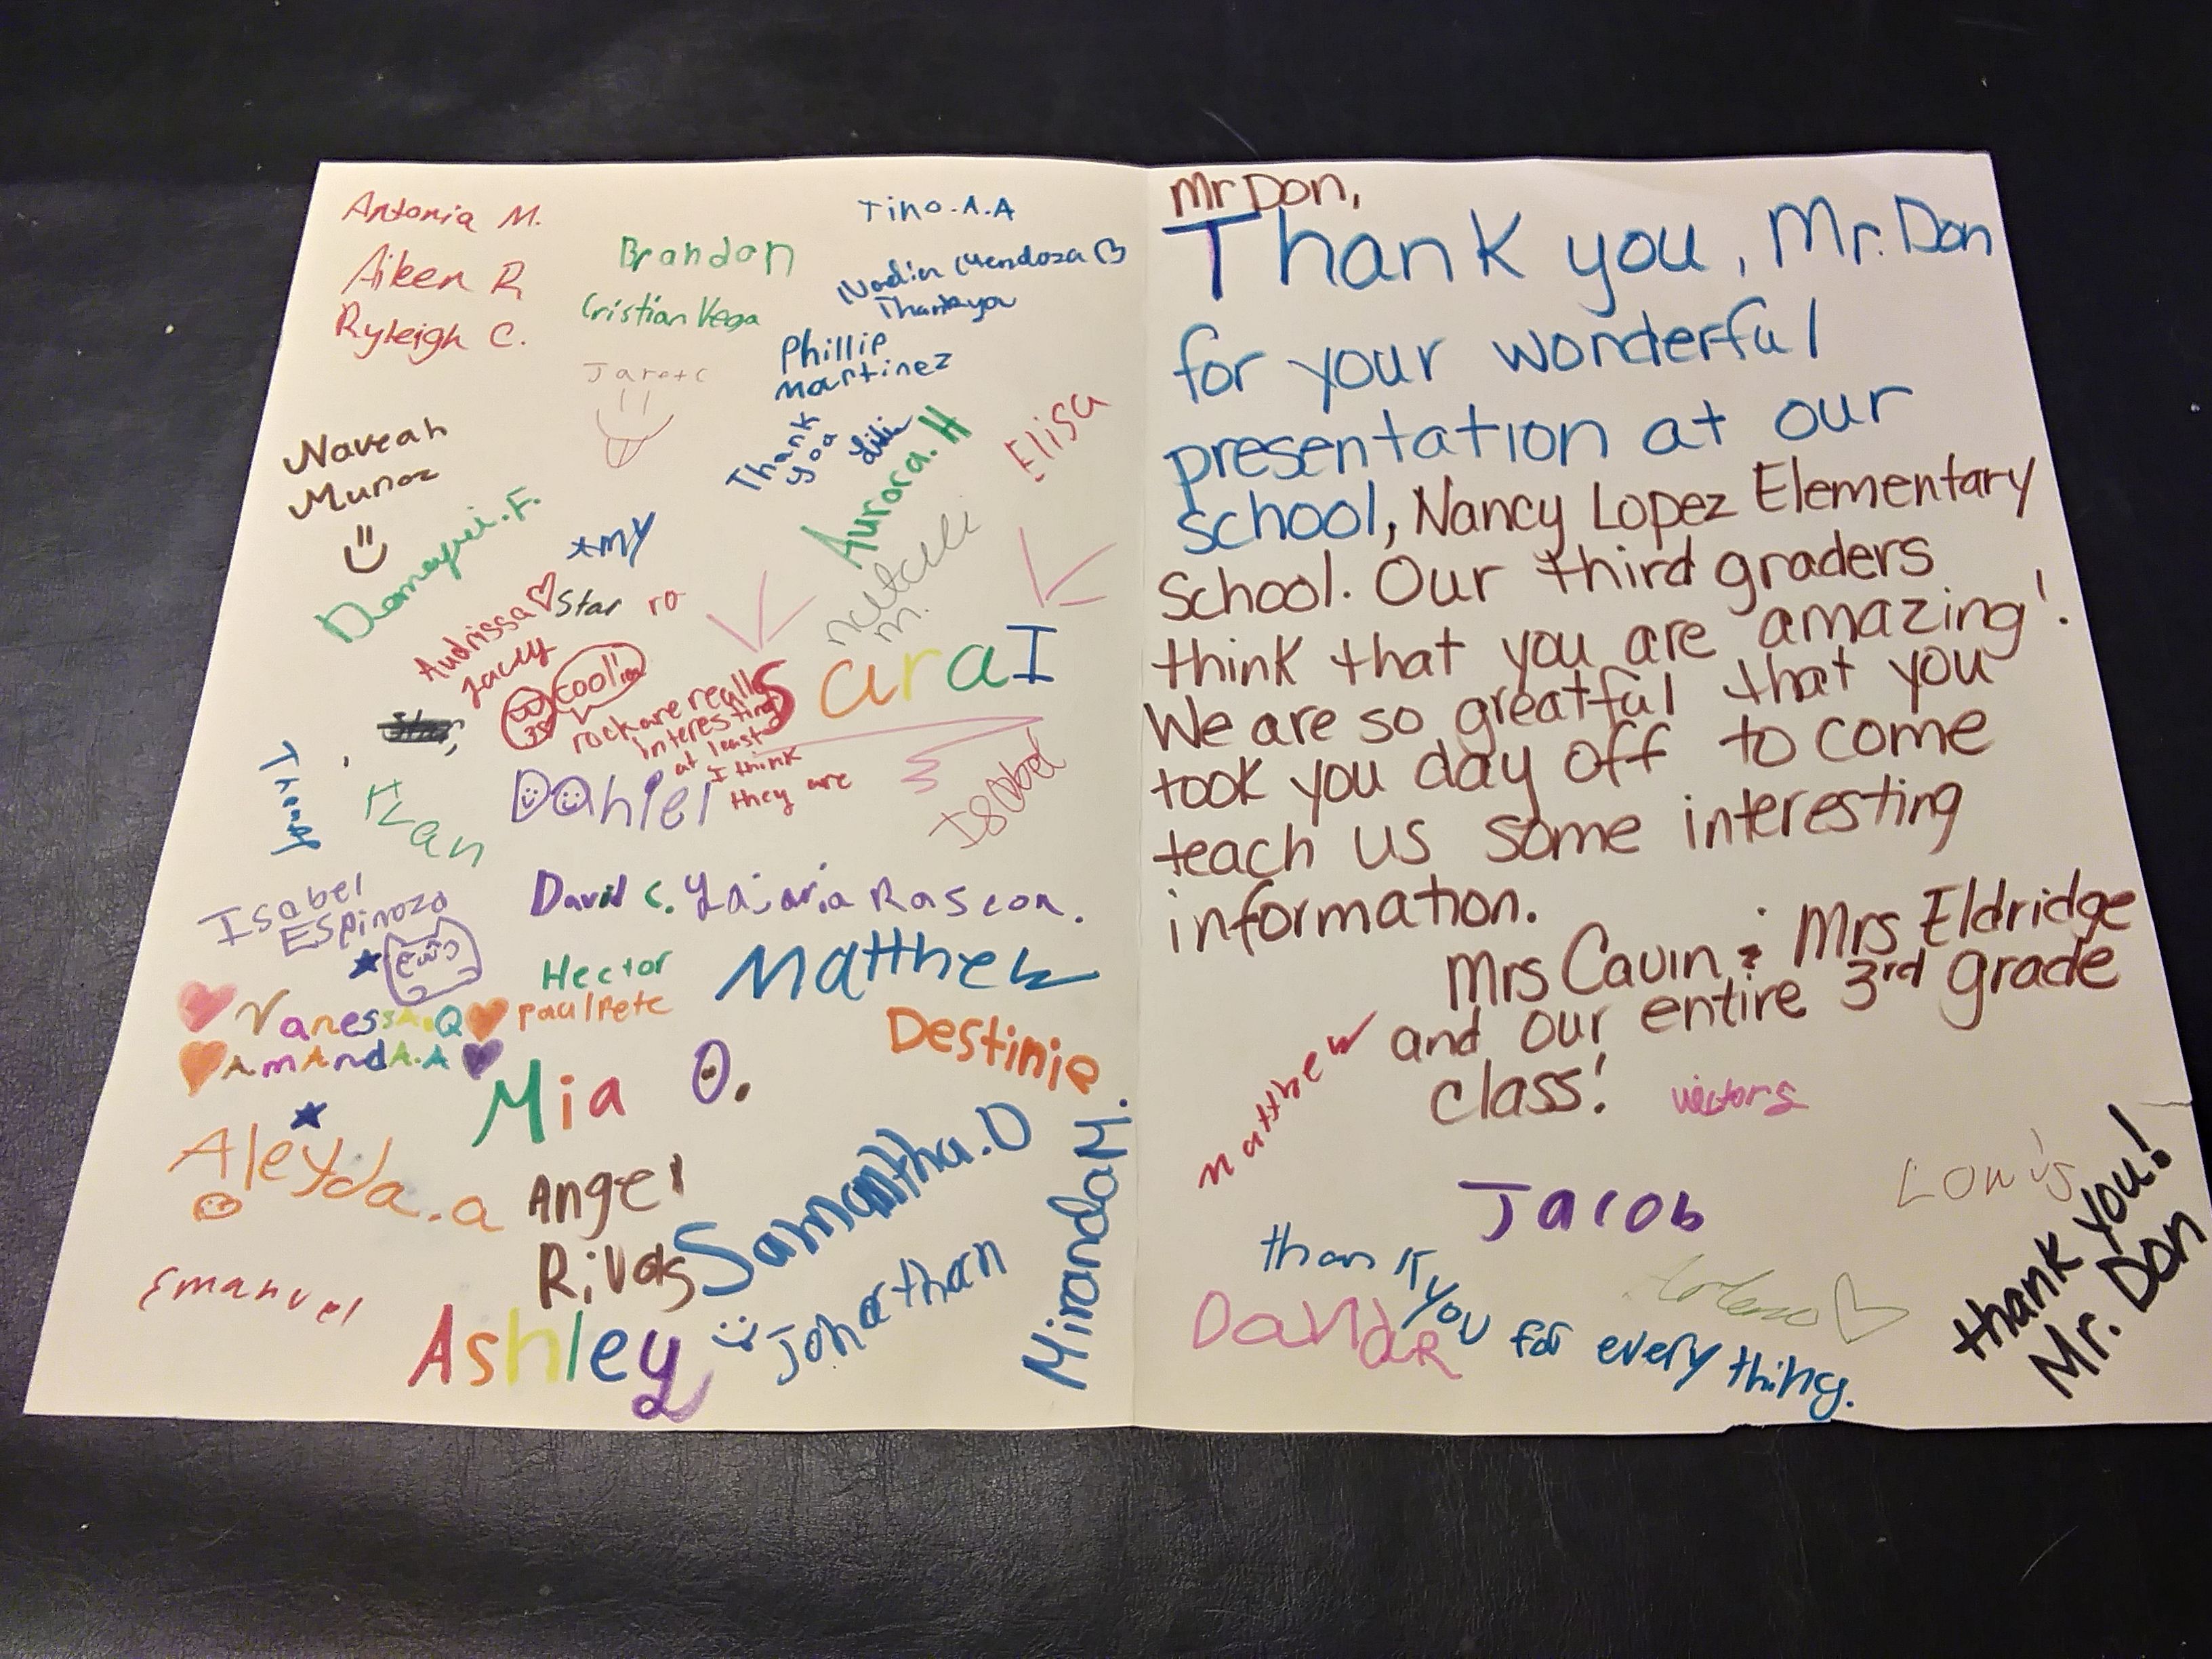 Antonia M.
Aiken R
Ryleigh C.
Brandon
Cristian Vega
Tino.A.A
Mendoza
Thank you
Phillip
Martinez
Thank
you
Naveah
Munoz
Aurora.H
Elisa
Audrissa
Star
*my
ro
m.
SaraI
cool
rock are really
interesting
at least
I think
they are
Daniel
Isabel
Isabel
Espinoza
David C.
Rascon.
Hector
Matthew
VanessA.Q
AmAndA.A
Destinie
Mia O.
Aleyda.a
Angel
Rivas
Samantha.D
MirandaM.
Emanuel
Ashley
Johathan
Mr Don,
Thank you, Mr. Don
for your wonderful
presentation at our
school, Nancy Lopez Elementary
School. Our third graders
think that you are amazing!
We are so greatful that you
took you day off to come
teach us some interesting
information.
Mrs Cavin & Mrs Eldridge
and our entire 3rd grade
class!
Matthew
Jacob
thank you for every thing.
thank you!
Mr. Don